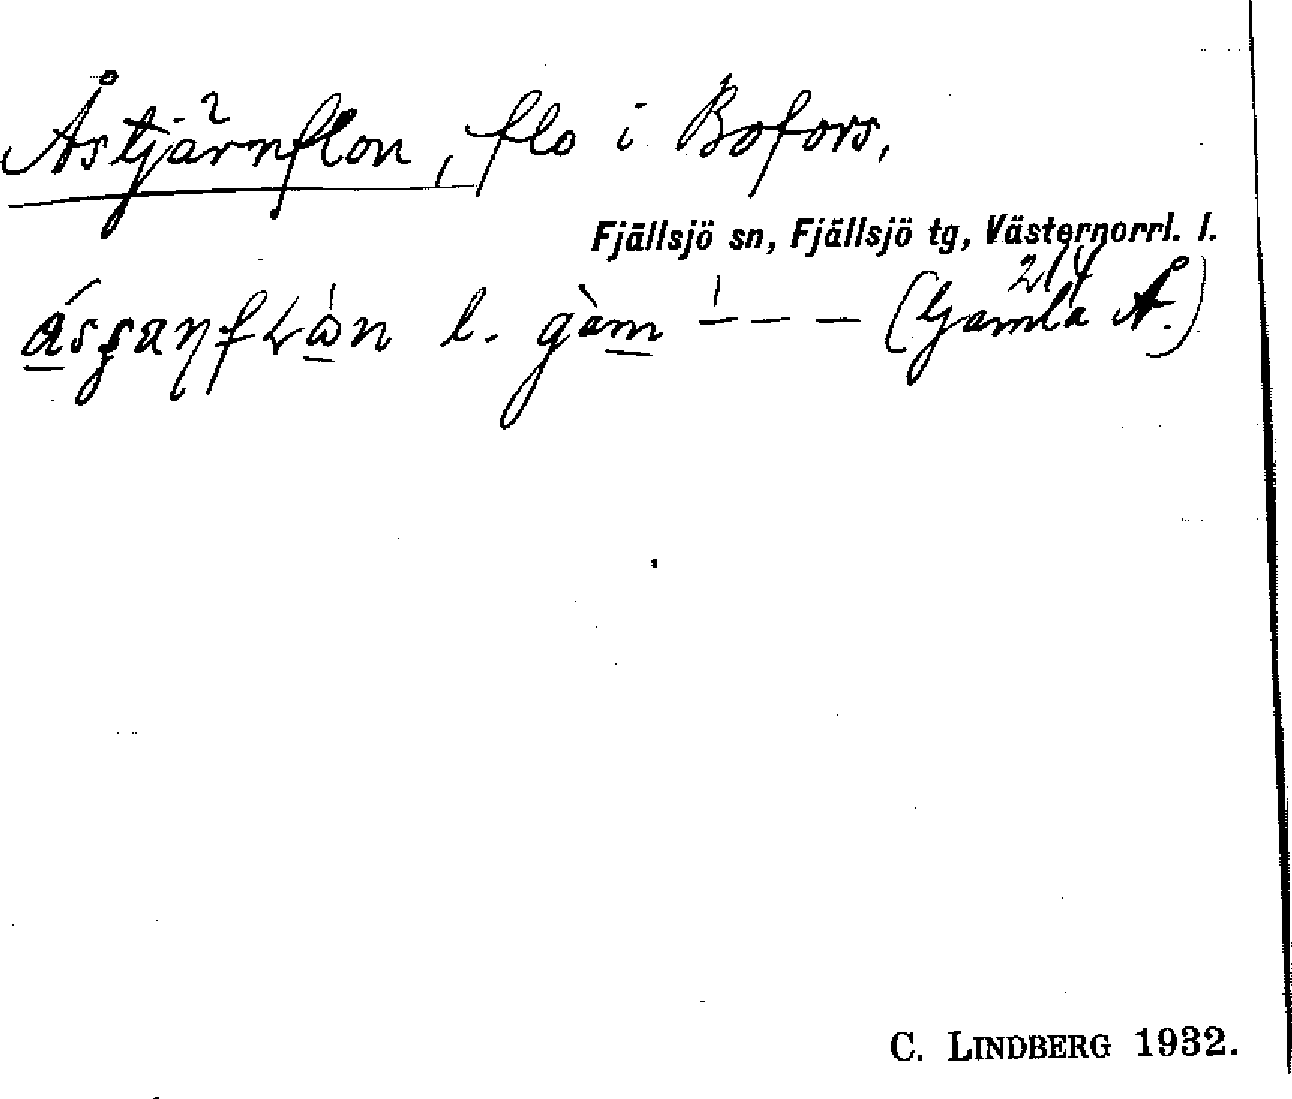 Åstjärnflon, flo i Bofors,
Fjällsjö sn, Fjällsjö tg, Västernorrl. l.
l. gàm – – – (Gamla Å.)
C. LINDBERG 1932.